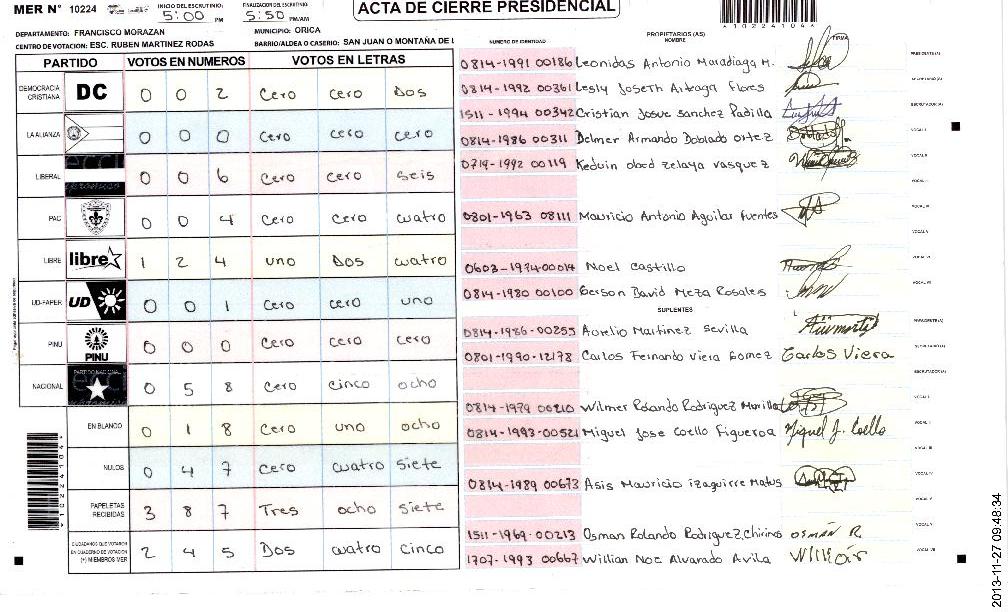 MER N° 10224 INICIO DEL ESCRUTINIO: 5:00 PM FINALIZACION DEL ESCRUTINIO: 5:50 PM/AM
ACTA DE CIERRE PRESIDENCIAL
10224104
DEPARTAMENTO: FRANCISCO MORAZAN MUNICIPIO: ORICA
CENTRO DE VOTACION: ESC. RUBEN MARTINEZ RODAS BARRIO/ALDEA O CASERIO: SAN JUAN O MONTAÑA DE
PARTIDO VOTOS EN NUMEROS VOTOS EN LETRAS
DEMOCRACIA CRISTIANA DC 0 0 2 Cero cero Dos
LA ALIANZA 0 0 0 cero cero cero
LIBERAL 0 0 6 cero cero seis
PAC 0 0 4 cero cero cuatro
LIBRE libre 1 2 4 uno Dos cuatro
UD-FAPER UD 0 0 1 cero cero uno
PINU PINU 0 0 0 cero cero cero
NACIONAL PARTIDO NACIONAL 0 5 8 cero cinco ocho
EN BLANCO 0 1 8 cero uno ocho
NULOS 0 4 7 cero cuatro siete
PAPELETAS RECIBIDAS 3 8 7 Tres ocho siete
CIUDADANOS QUE VOTARON EN CUADERNO DE VOTACION (+) MIEMBROS MER 2 4 5 Dos cuatro cinco
10224104
NUMERO DE IDENTIDAD PROPIETARIOS (AS) NOMBRE FIRMA
0814-1991 00186 Leonidas Antonio Maradiaga M. PRESIDENTE(A)
0814-1992 00361 Lesly Joseth Arteaga Flores SECRETARIO(A)
1511-1994 00342 Cristian Josue sanchez Padilla ESCRUTADOR (A)
0814-1986 00311 Delmer Armando Doblado ortez VOCAL I
0719-1992 00119 Keduin obed zelaya vasquez VOCAL II
VOCAL III
0801-1963 08111 Mauricio Antonio Aguilar fuentes VOCAL IV
VOCAL V
0603-1974-00014 Noel Castillo VOCAL VI
0814-1980 00100 Gerson David Meza Rosales VOCAL VII
SUPLENTES
0814-1986-00255 Aurelio Martinez Sevilla PRESIDENTE(A)
0801-1990-12178 Carlos Fernando Viera Gomez Carlos Viera SECRETARIO(A)
ESCRUTADOR(A)
0814-1979 00210 Wilmer Rolando Rodriguez Murillo VOCAL I
0814-1993-00521 Miguel Jose Coello Figueroa Miguel J. Coello VOCAL II
VOCAL III
0814-1989 00673 Asis Mauricio izaguirre Matus VOCAL IV
VOCAL V
1511-1969-00213 Osman Rolando Rodriguez Chirino osmañ R. VOCAL VI
1707-1993 00667 Willian Noe Alvarado Avila VOCAL VII
2013-11-27 09:48:34